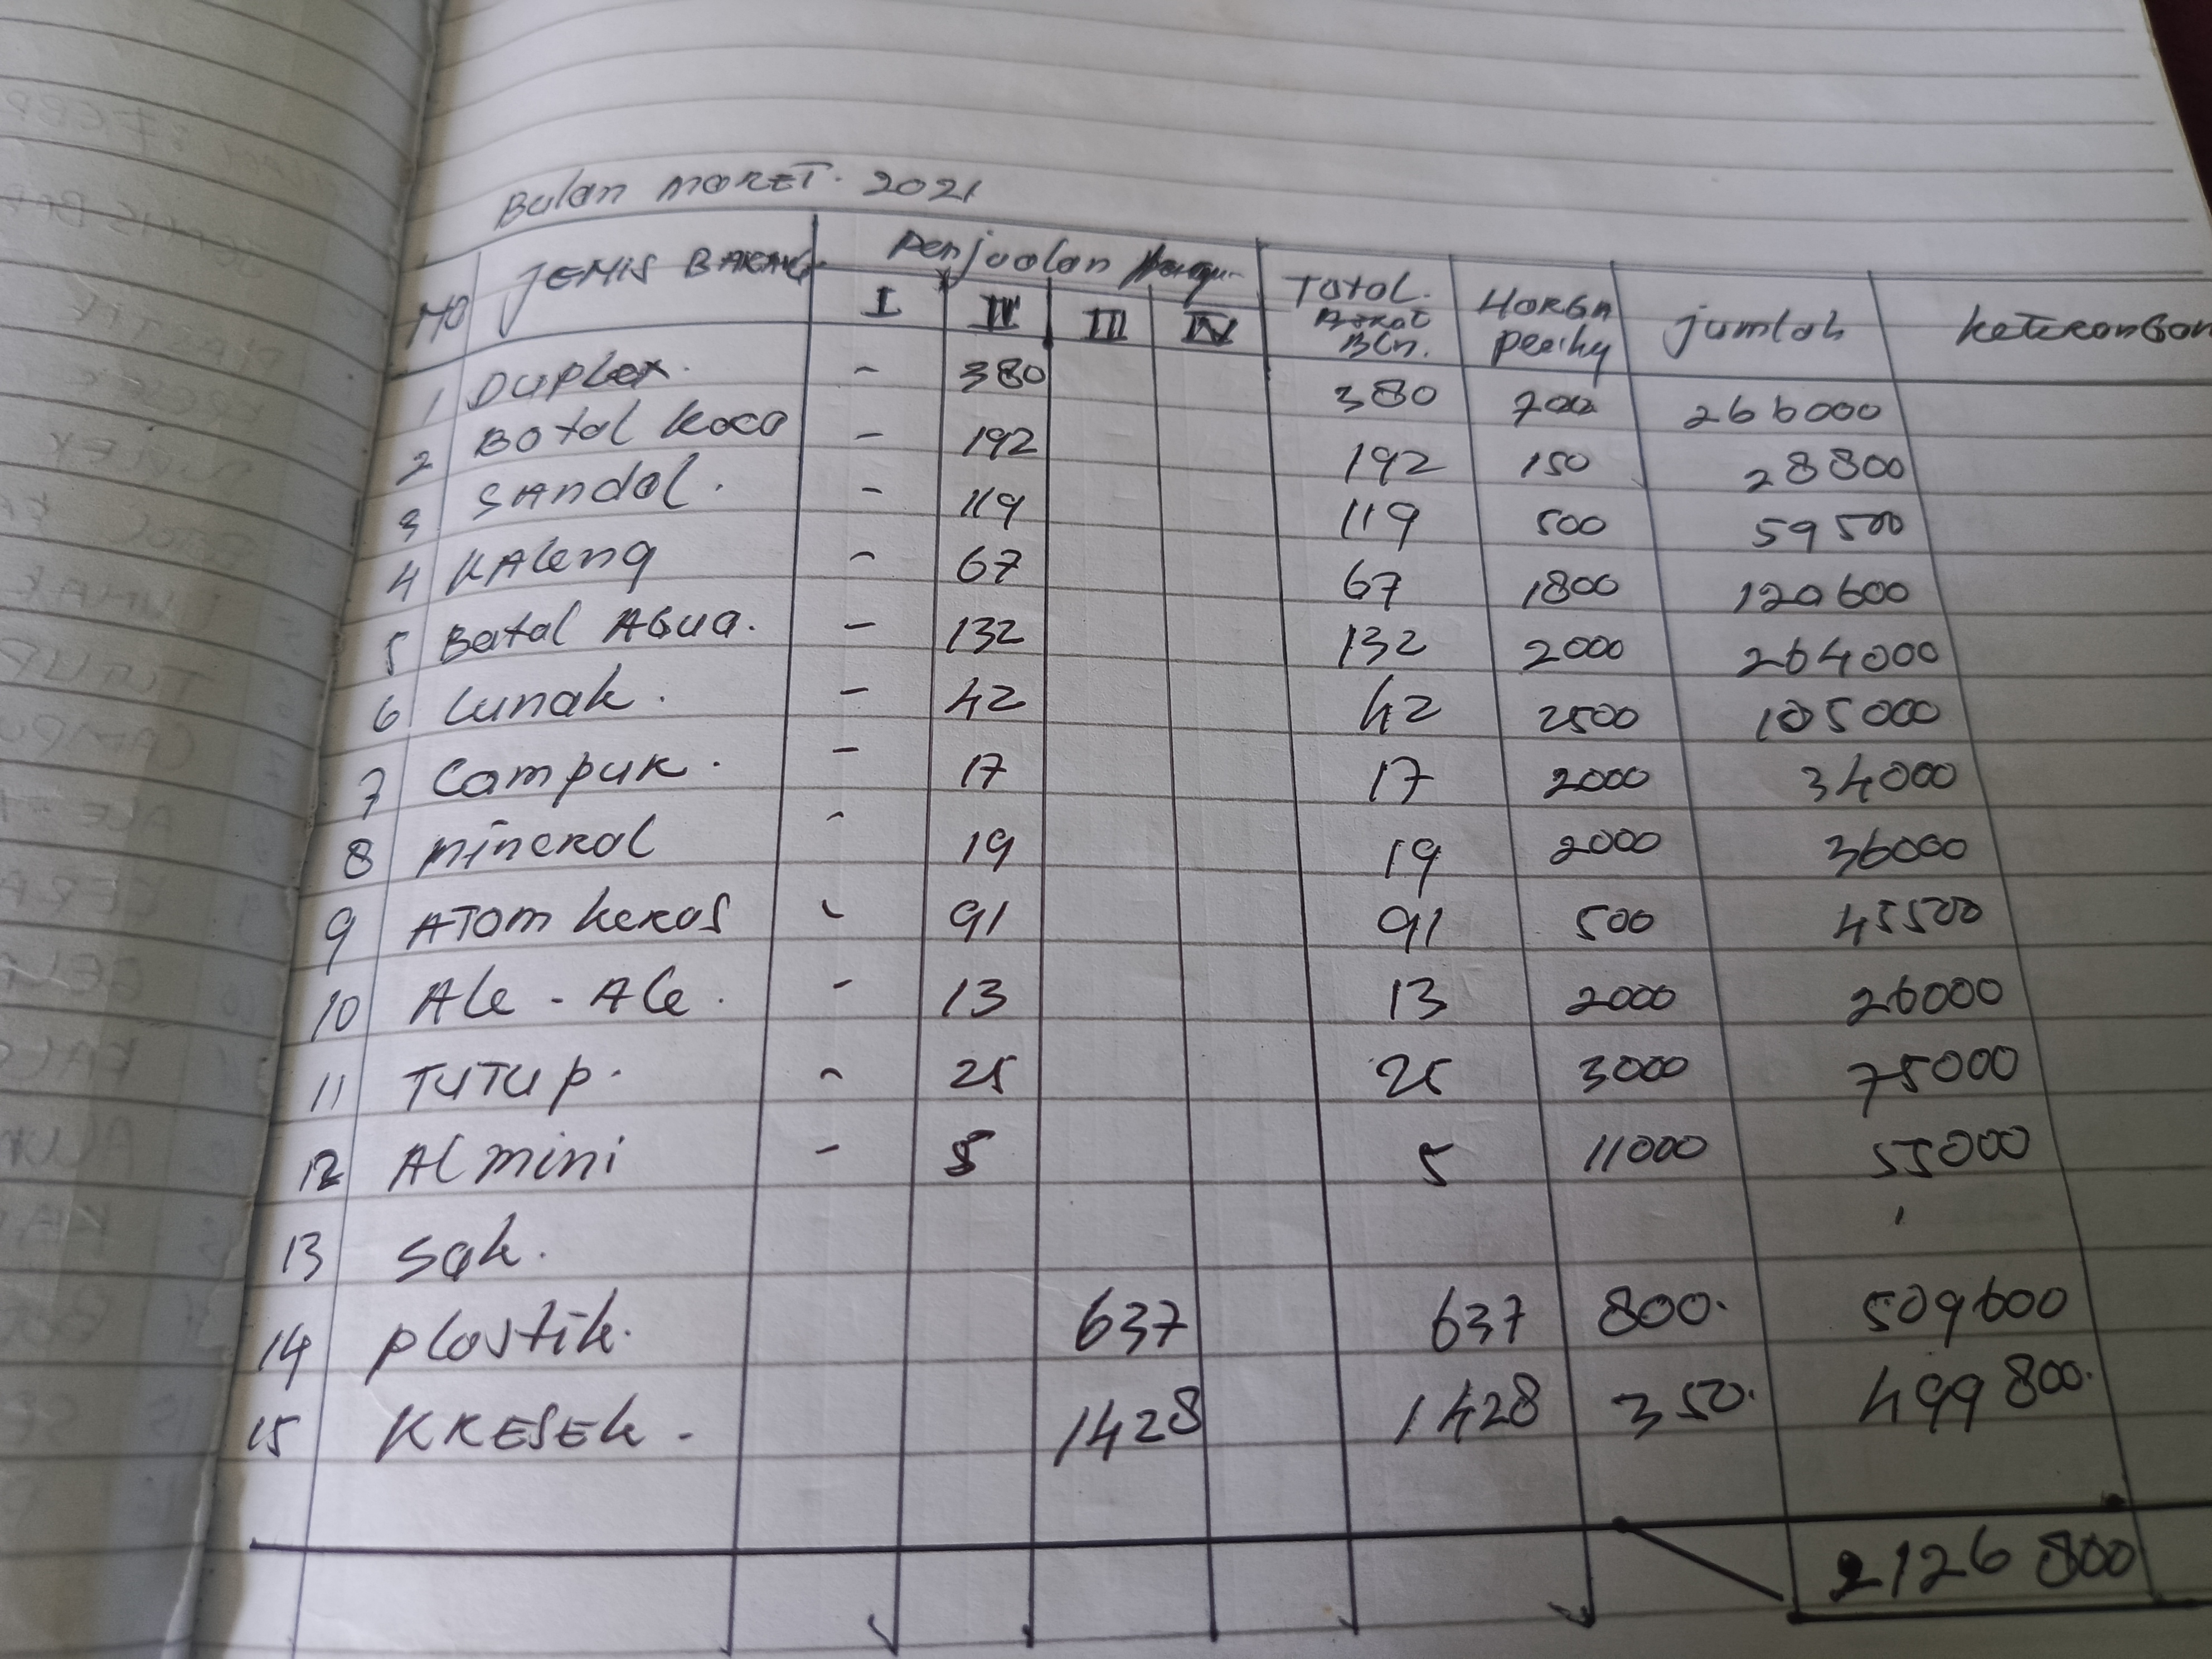 Bulan MARET. 2021
NO JENIS BARANG Penjualan Total. HARGA jumlah keterangan
I II III IV Berat perkg
Bln.
1 Duplex. - 380 380 700 266000
2 Botol kaca - 192 192 150 28800
3 SANdal. - 119 119 500 59500
4 KALeng - 67 67 1800 120600
5 Botol AGua. - 132 132 2000 264000
6 Lunak. - 42 42 2500 105000
7 Campur. - 17 17 2000 34000
8 mineral - 19 19 2000 36000
9 ATOM keras - 91 91 500 45500
10 ALe - ALe. - 13 13 2000 26000
11 TUTUP. - 25 25 3000 75000
12 ALmini - 5 5 11000 55000
13 Sak.
14 plastik. 637 637 800. 509600
15 KRESEK. 1428 1428 350. 499800.
2126800